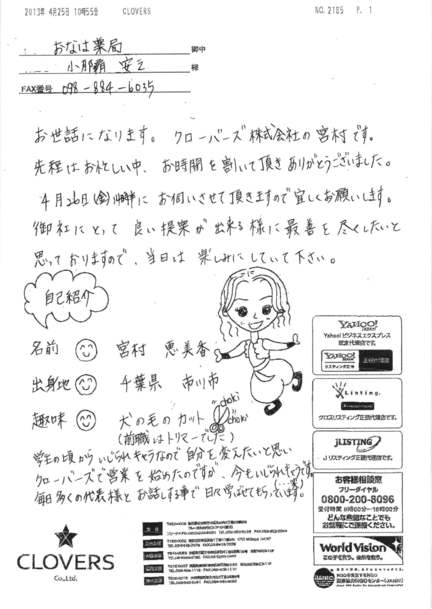 2013年 4月25日 10時55分 CLOVERS NO. 2185 P. 1
おなは薬局 御中
小那覇 安之 様
FAX番号 098-884-6035
お世話になります。 クローバーズ株式会社の宮村です。
先程はお忙しい中、お時間を割いて頂きありがとうございました。
4月26日(金) にお伺いさせて頂きますので宜しくお願いします。
御社にとって良い提案が出来る様に最善を尽くしたいと
思っておりますので、当日は楽しみにしていて下さい。
自己紹介
名前 宮村 恵美香
出身地 千葉県 市川市
趣味 犬の毛のカット choki choki
(前職はトリマーでした)
学生の頃からいじられキャラなので自分を変えたいと思い
クローバーズで営業を始めたのですが、今もいじられキャラです。
毎日多くの代表様とお話しする事で日々学ばせてもらっています。
YAHOO! JAPAN
Yahoo!ビジネスエクスプレス
認定代理店です。
YAHOO! JAPAN
リスティング広告 正規代理店
Listing.
クロスリスティング正規代理店です。
JLISTING
Jリスティング正規代理店です。
お客様相談室
フリーダイヤル
0800-200-8096
受付時間 9時00分~18時00分
どんな些細なことでも
お気軽にご連絡ください。
World Vision
この子を救う。未来を救う。
CLOVERS
Co.,Ltd.